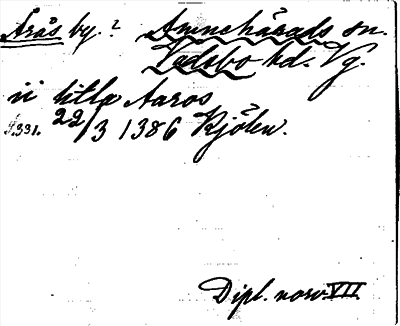 Årås by. ? Amnehärads sn.
Vadsbo hd. Vg.
ii litla Aaros
s. 331. 22/3 1386 Kjölen.
Dipl. norv. VII.